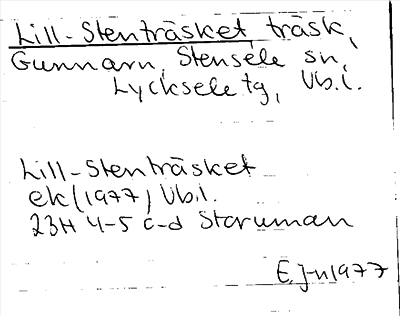 Lill-Stenträsket, träsk,
Gunnarn, Stensele sn,
Lycksele tg, Vb.l.
Lill-Stenträsket
ek (1977) Vb.l.
23H 4-5 c-d Storuman
E. J-n 1977